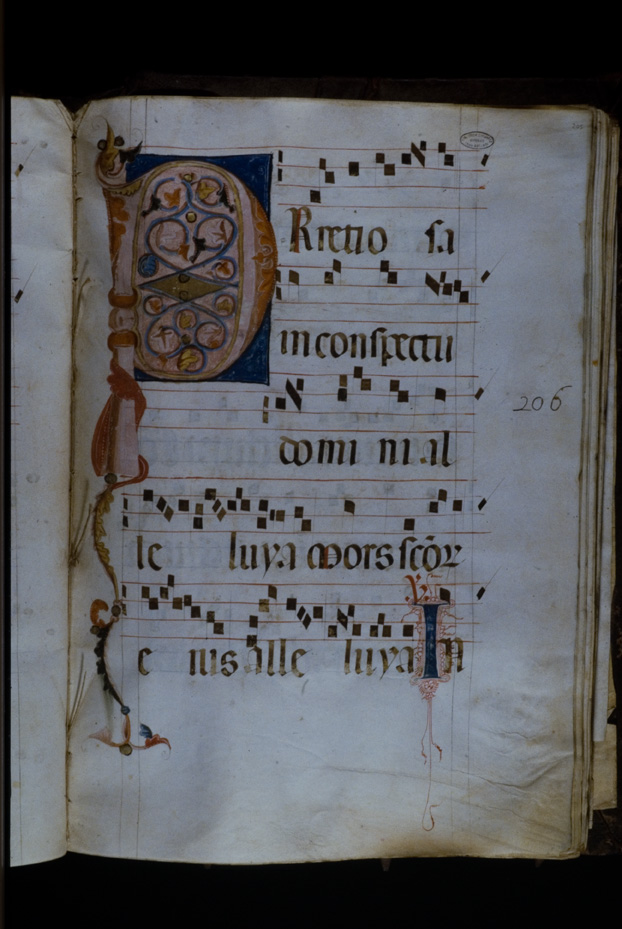 PRetio sa
206
in conspectu
domi ni al
le luya mors scōꝝ
e ius alle luya ℣ In